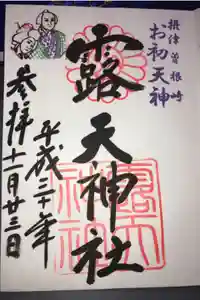 摂津曽根崎
お初天神
露天神社
平成三十年
参拝十一月廿三日
露天神社